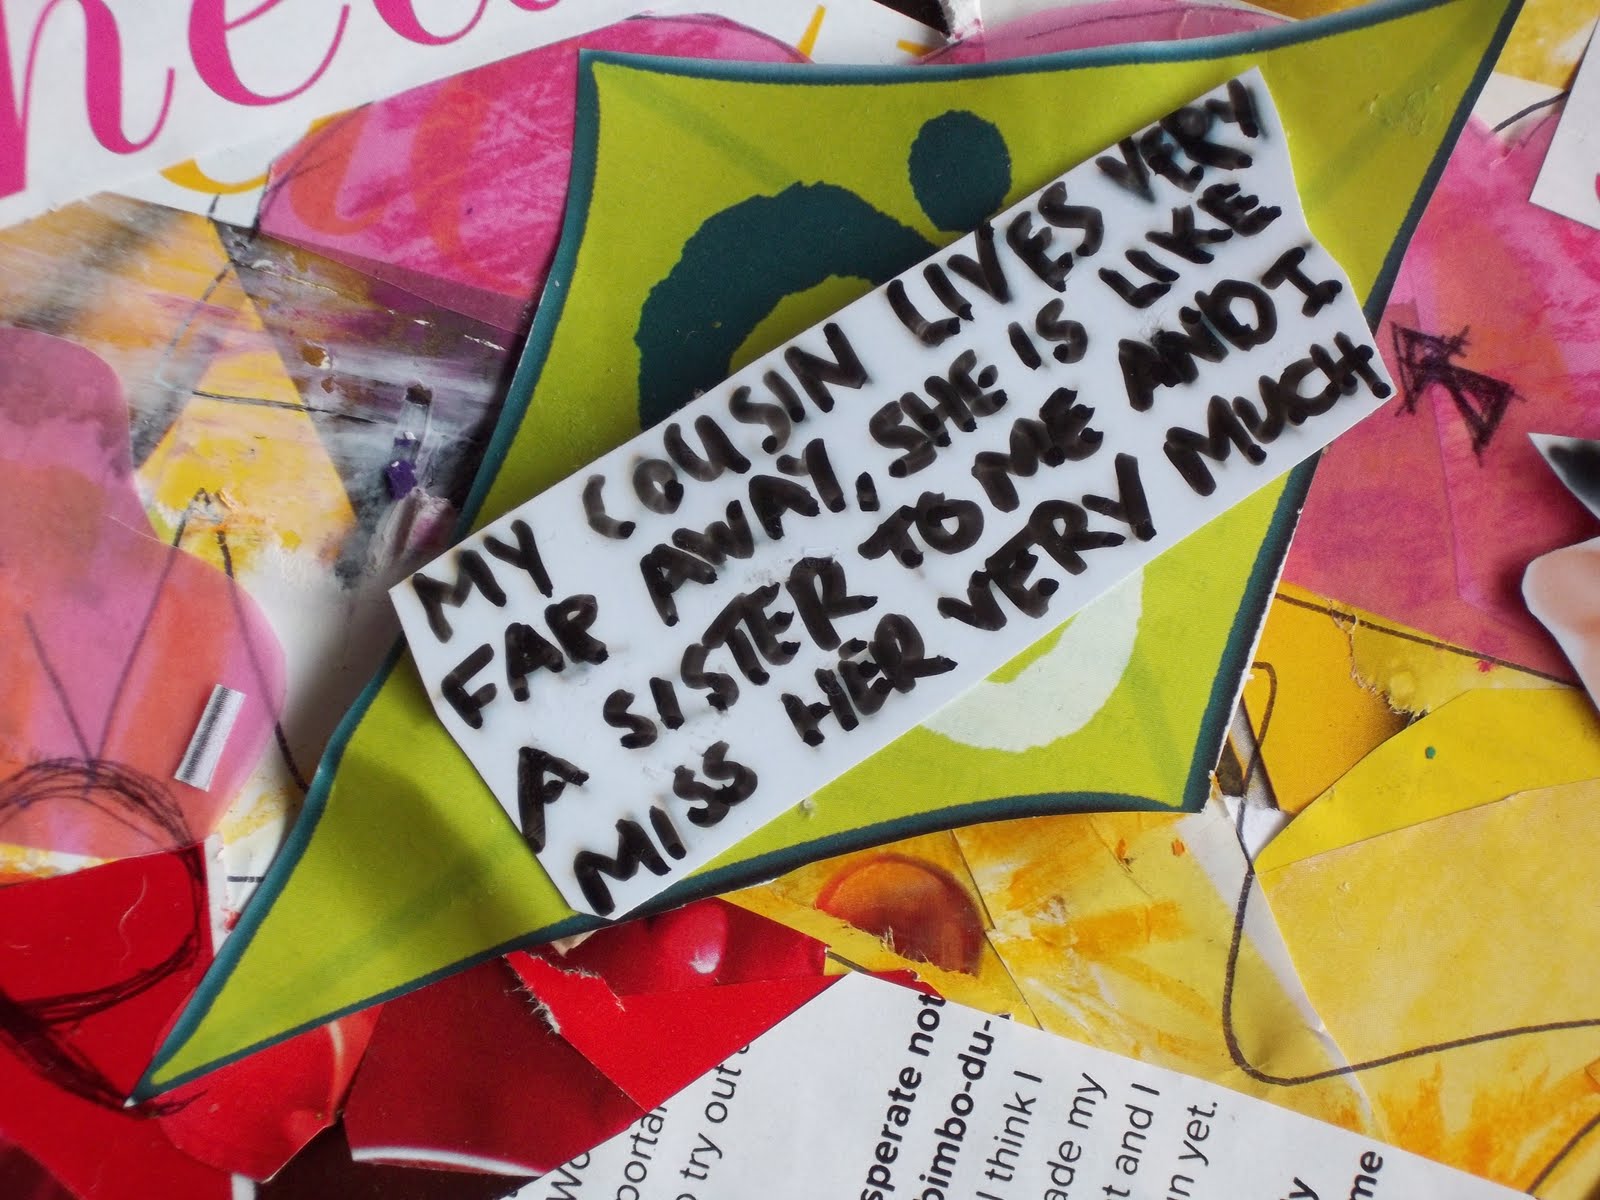 MY COUSIN LIVES VERY
FAR AWAY, SHE IS LIKE
A SISTER TO ME AND I
MISS HER VERY MUCH.
portan
try out
sperate not
bimbo-du-
I think I
ade my
t and I
un yet.
me